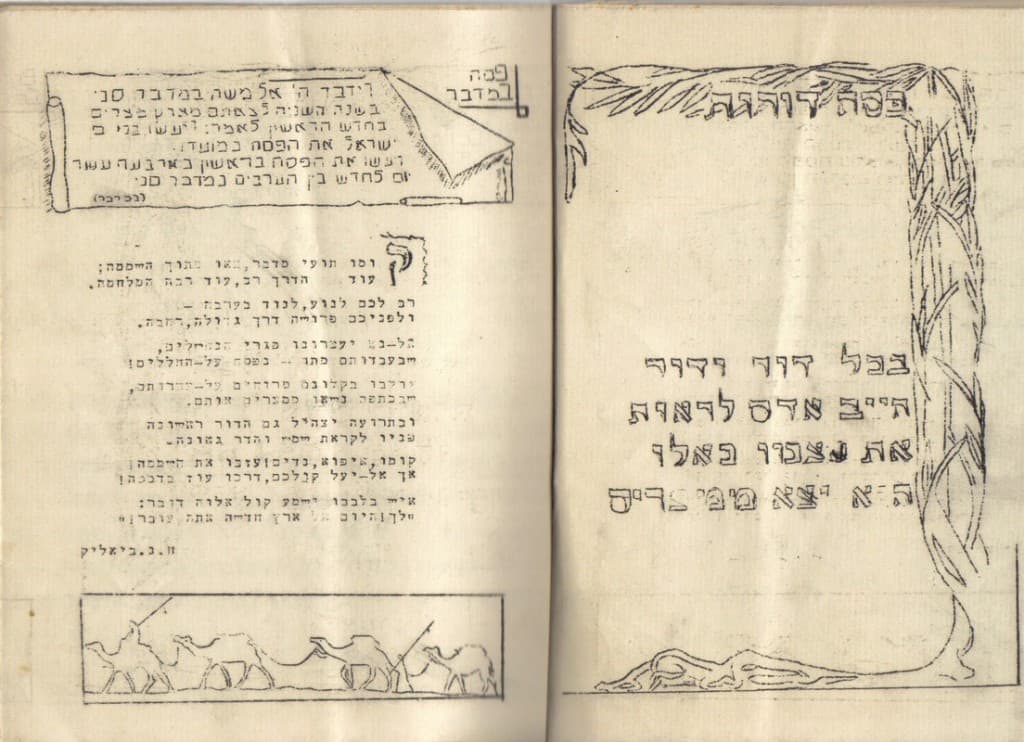 פסח דורות
בכל דור ודור
חייב אדם לראות
את עצמו כאלו
הוא יצא ממצרים
פסח
במדבר
וידבר ה' אל משה במדבר סני
בשנה השניה לצאתם מארץ מצרים
בחדש הראשון לאמר: ויעשו בני
ישראל את הפסח במועדו.
ויעשו את הפסח בראשון בארבעה עשר
יום לחדש בין הערבים במדבר סני
(במדבר)
קומו תועי מדבר, צאו מתוך השממה;
עוד הדרך רב, עוד רבה המלחמה.
רב לכם לנוע, לנוד בערבה –
ולפניכם פרושה דרך גדולה, רחבה.
יעצרונו פגרי הנחשלים,
שבעבדותם מתו – נפסח על-החללים!
בקלונם סרוחים
שבכתפם נשאו ממצרים אותם.
ובתרועה יצהיל גם הדור ראשונה
פניו לקראת שמש והדר גאונה.
קומו, איפוא, נדים! עזבו את השממה!
אך אל-יעל קולכם, דרכו עוז בדממה!
איש בלבבו ישמע קול אלוה דובר:
"לך! היום אל ארץ חדשה אתה עובר!"
ח.נ.ביאליק